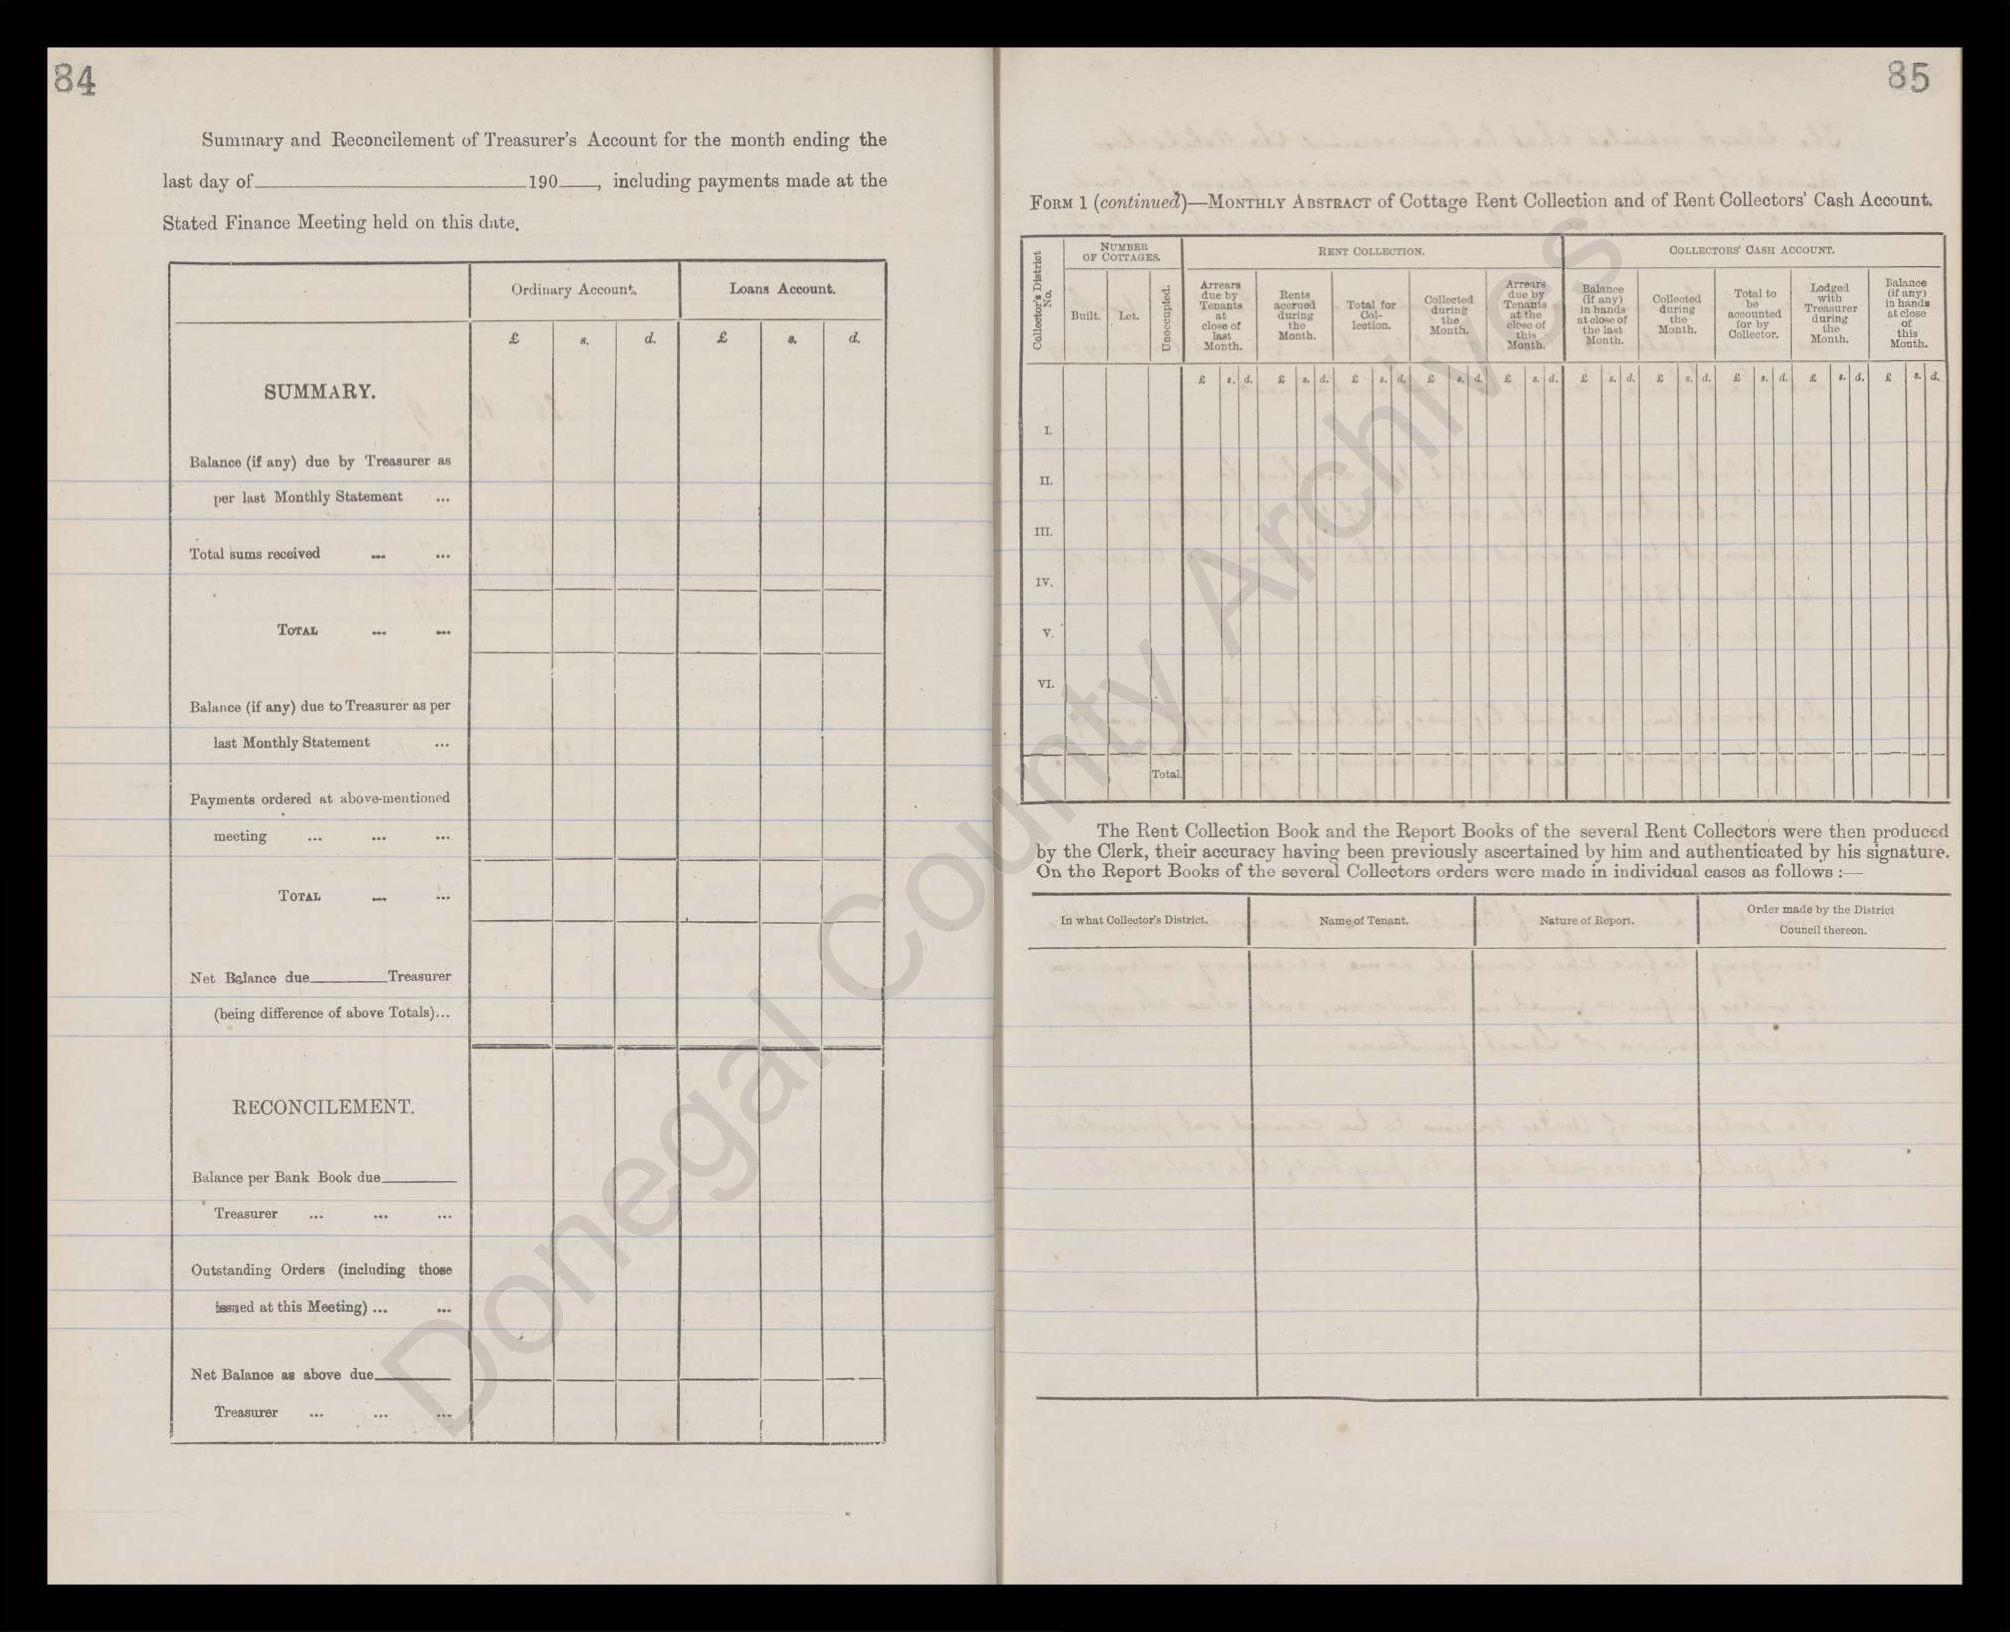 84
Summary and Reconcilement of Treasurer's Account for the month ending the
last day of 190 , including payments made at the
Stated Finance Meeting held on this date.
Ordinary Account. Loans Account.
£ s. d. £ s. d.
SUMMARY.
Balance (if any) due by Treasurer as
per last Monthly Statement ...
Total sums received ... ...
TOTAL ... ...
Balance (if any) due to Treasurer as per
last Monthly Statement ...
Payments ordered at above-mentioned
meeting ... ... ...
TOTAL ... ...
Net Balance due Treasurer
(being difference of above Totals)...
RECONCILEMENT.
Balance per Bank Book due
Treasurer ... ... ...
Outstanding Orders (including those
issued at this Meeting) ... ...
Net Balance as above due
Treasurer ... ... ...
85
FORM 1 (continued)—MONTHLY ABSTRACT of Cottage Rent Collection and of Rent Collectors' Cash Account.
Collector's District No.
NUMBER
OF COTTAGES.
RENT COLLECTION.
COLLECTORS' CASH ACCOUNT.
Built.
Let.
Unoccupied.
Arrears
due by
Tenants
at
close of
last
Month.
Rents
accrued
during
the
Month.
Total for
Col-
lection.
Collected
during
the
Month.
Arrears
due by
Tenants
at the
close of
this
Month.
Balance
(if any)
in hands
at close of
the last
Month.
Collected
during
the
Month.
Total to
be
accounted
for by
Collector.
Lodged
with
Treasurer
during
the
Month.
Balance
(if any)
in hands
at close
of
this
Month.
£ s. d. £ s. d. £ s. d. £ s. d. £ s. d. £ s. d. £ s. d. £ s. d. £ s. d. £ s. d.
I.
II.
III.
IV.
V.
VI.
Total.
The Rent Collection Book and the Report Books of the several Rent Collectors were then produced
by the Clerk, their accuracy having been previously ascertained by him and authenticated by his signature.
On the Report Books of the several Collectors orders were made in individual cases as follows :—
In what Collector's District. Name of Tenant. Nature of Report. Order made by the District
Council thereon.
Donegal County Archives